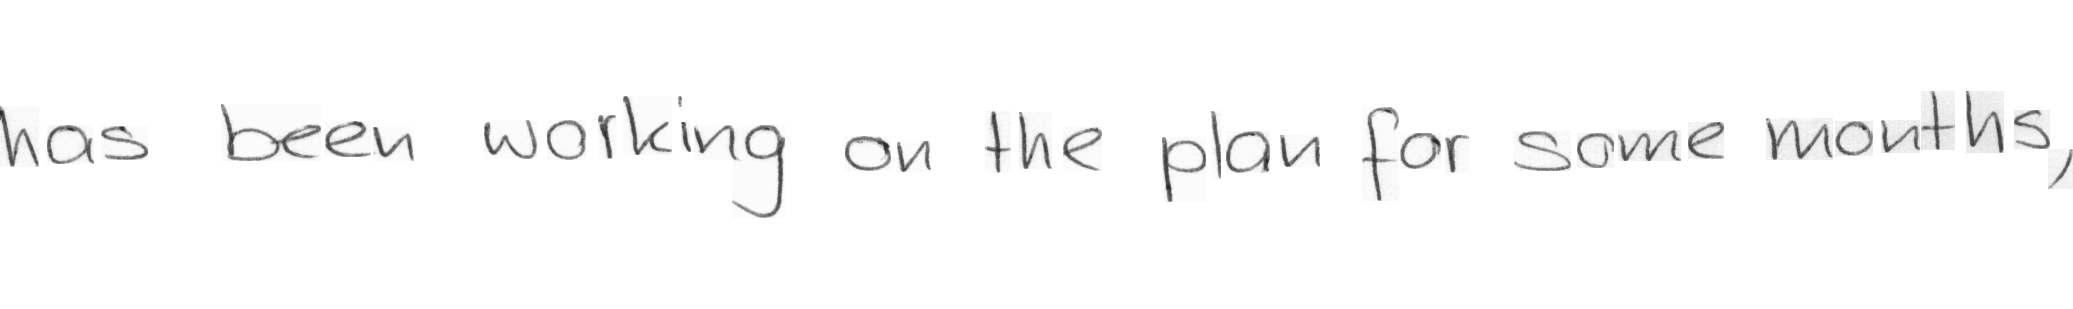 has been working on the plan for some months,